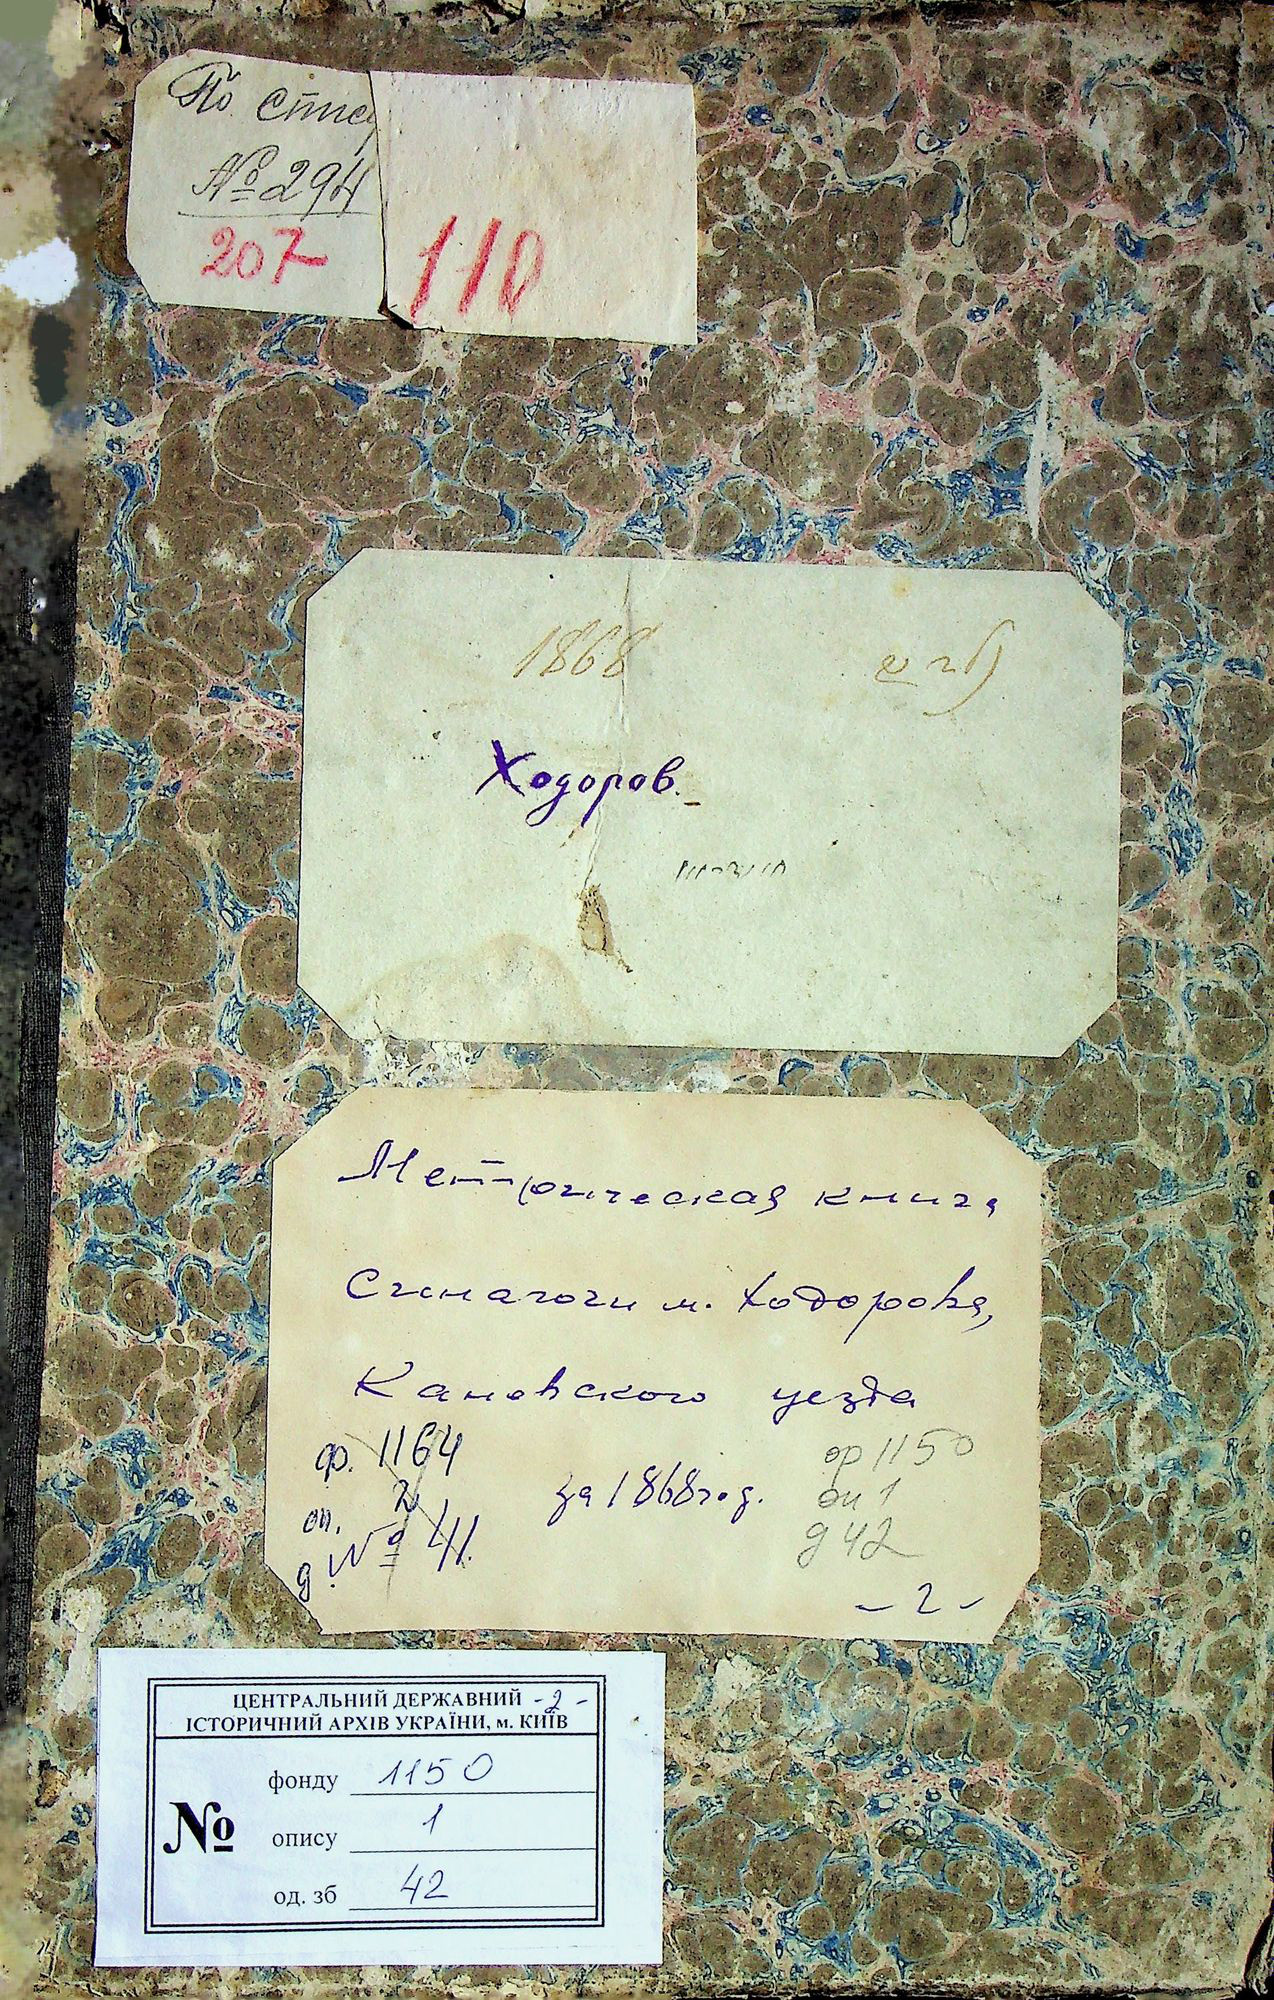 По
№ 294
207
110
1868
Ходоров.
Метрическая книга
Синагоги м. Ходорова,
Каневского уезда
ф. 1164
за 1868 год.
ф 1150
оп. 2
оп 1
д. № 41.
д 42
- 2 -
ЦЕНТРАЛЬНИЙ ДЕРЖАВНИЙ - 2 -
ІСТОРИЧНИЙ АРХІВ УКРАЇНИ, м. КИЇВ
№
фонду 1150
опису 1
од. зб 42